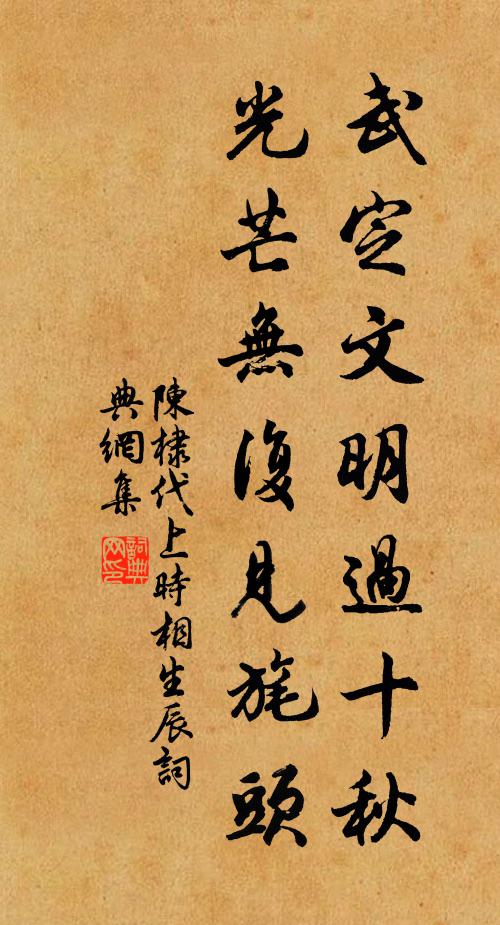 武定文明過十秋
光芒無復見旄頭
陳棣代上時相生辰詞
典網集
詞典网印